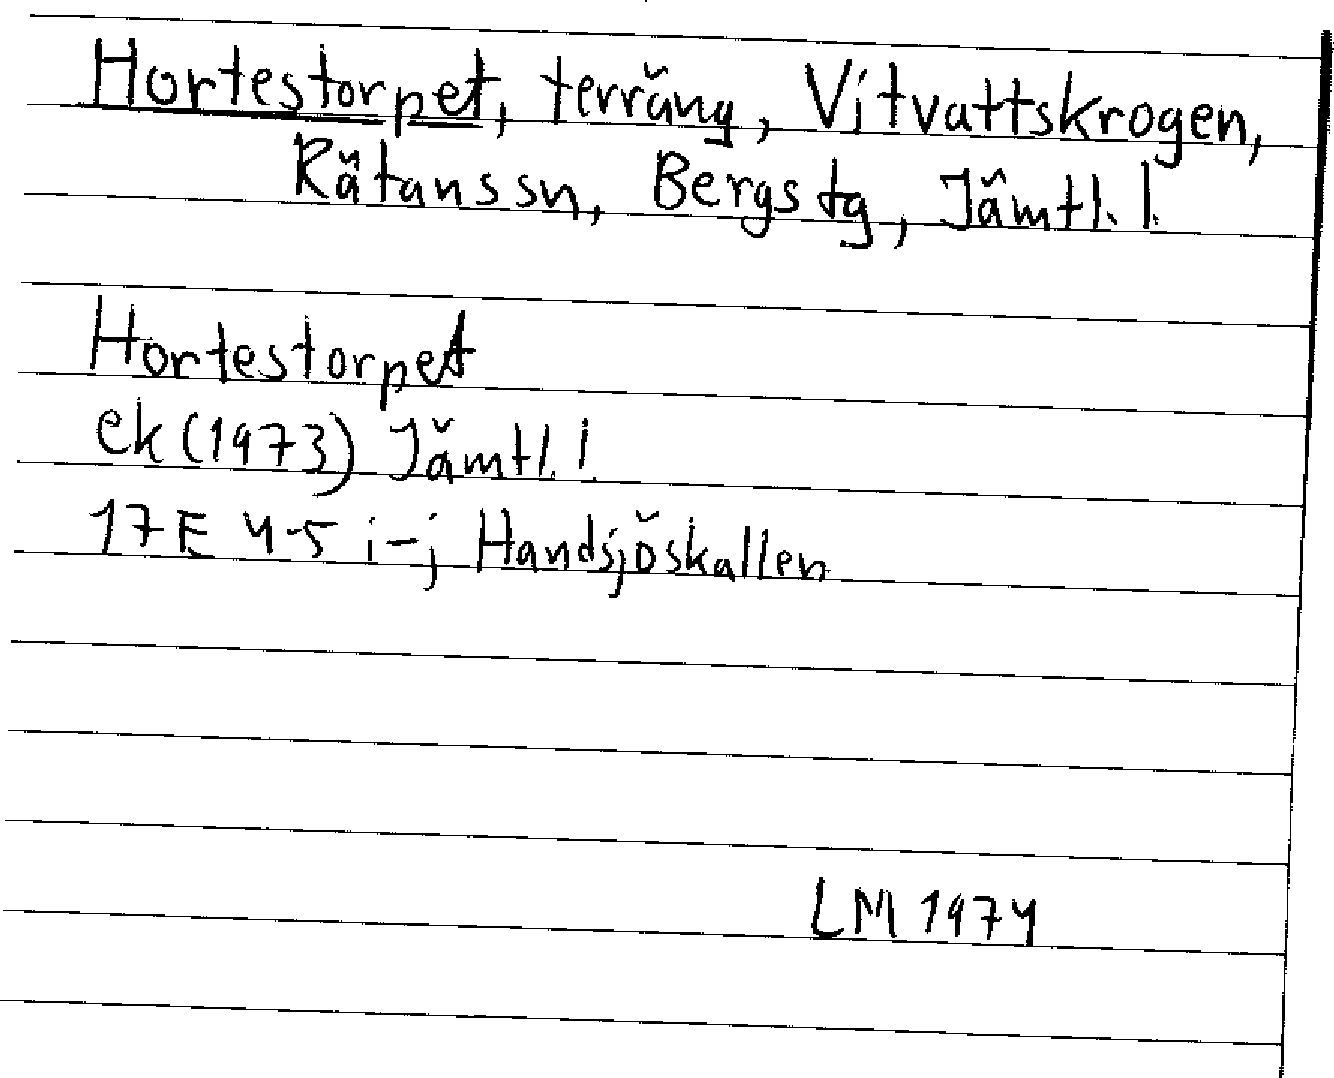 Hortestorpet, terräng, Vitvattskrogen,
Rätans sn, Bergs tg, Jämtl. l.
Hortestorpet
ek (1973) Jämtl. l.
17 E 4-5 i-j Handsjöskallen
LM 1974